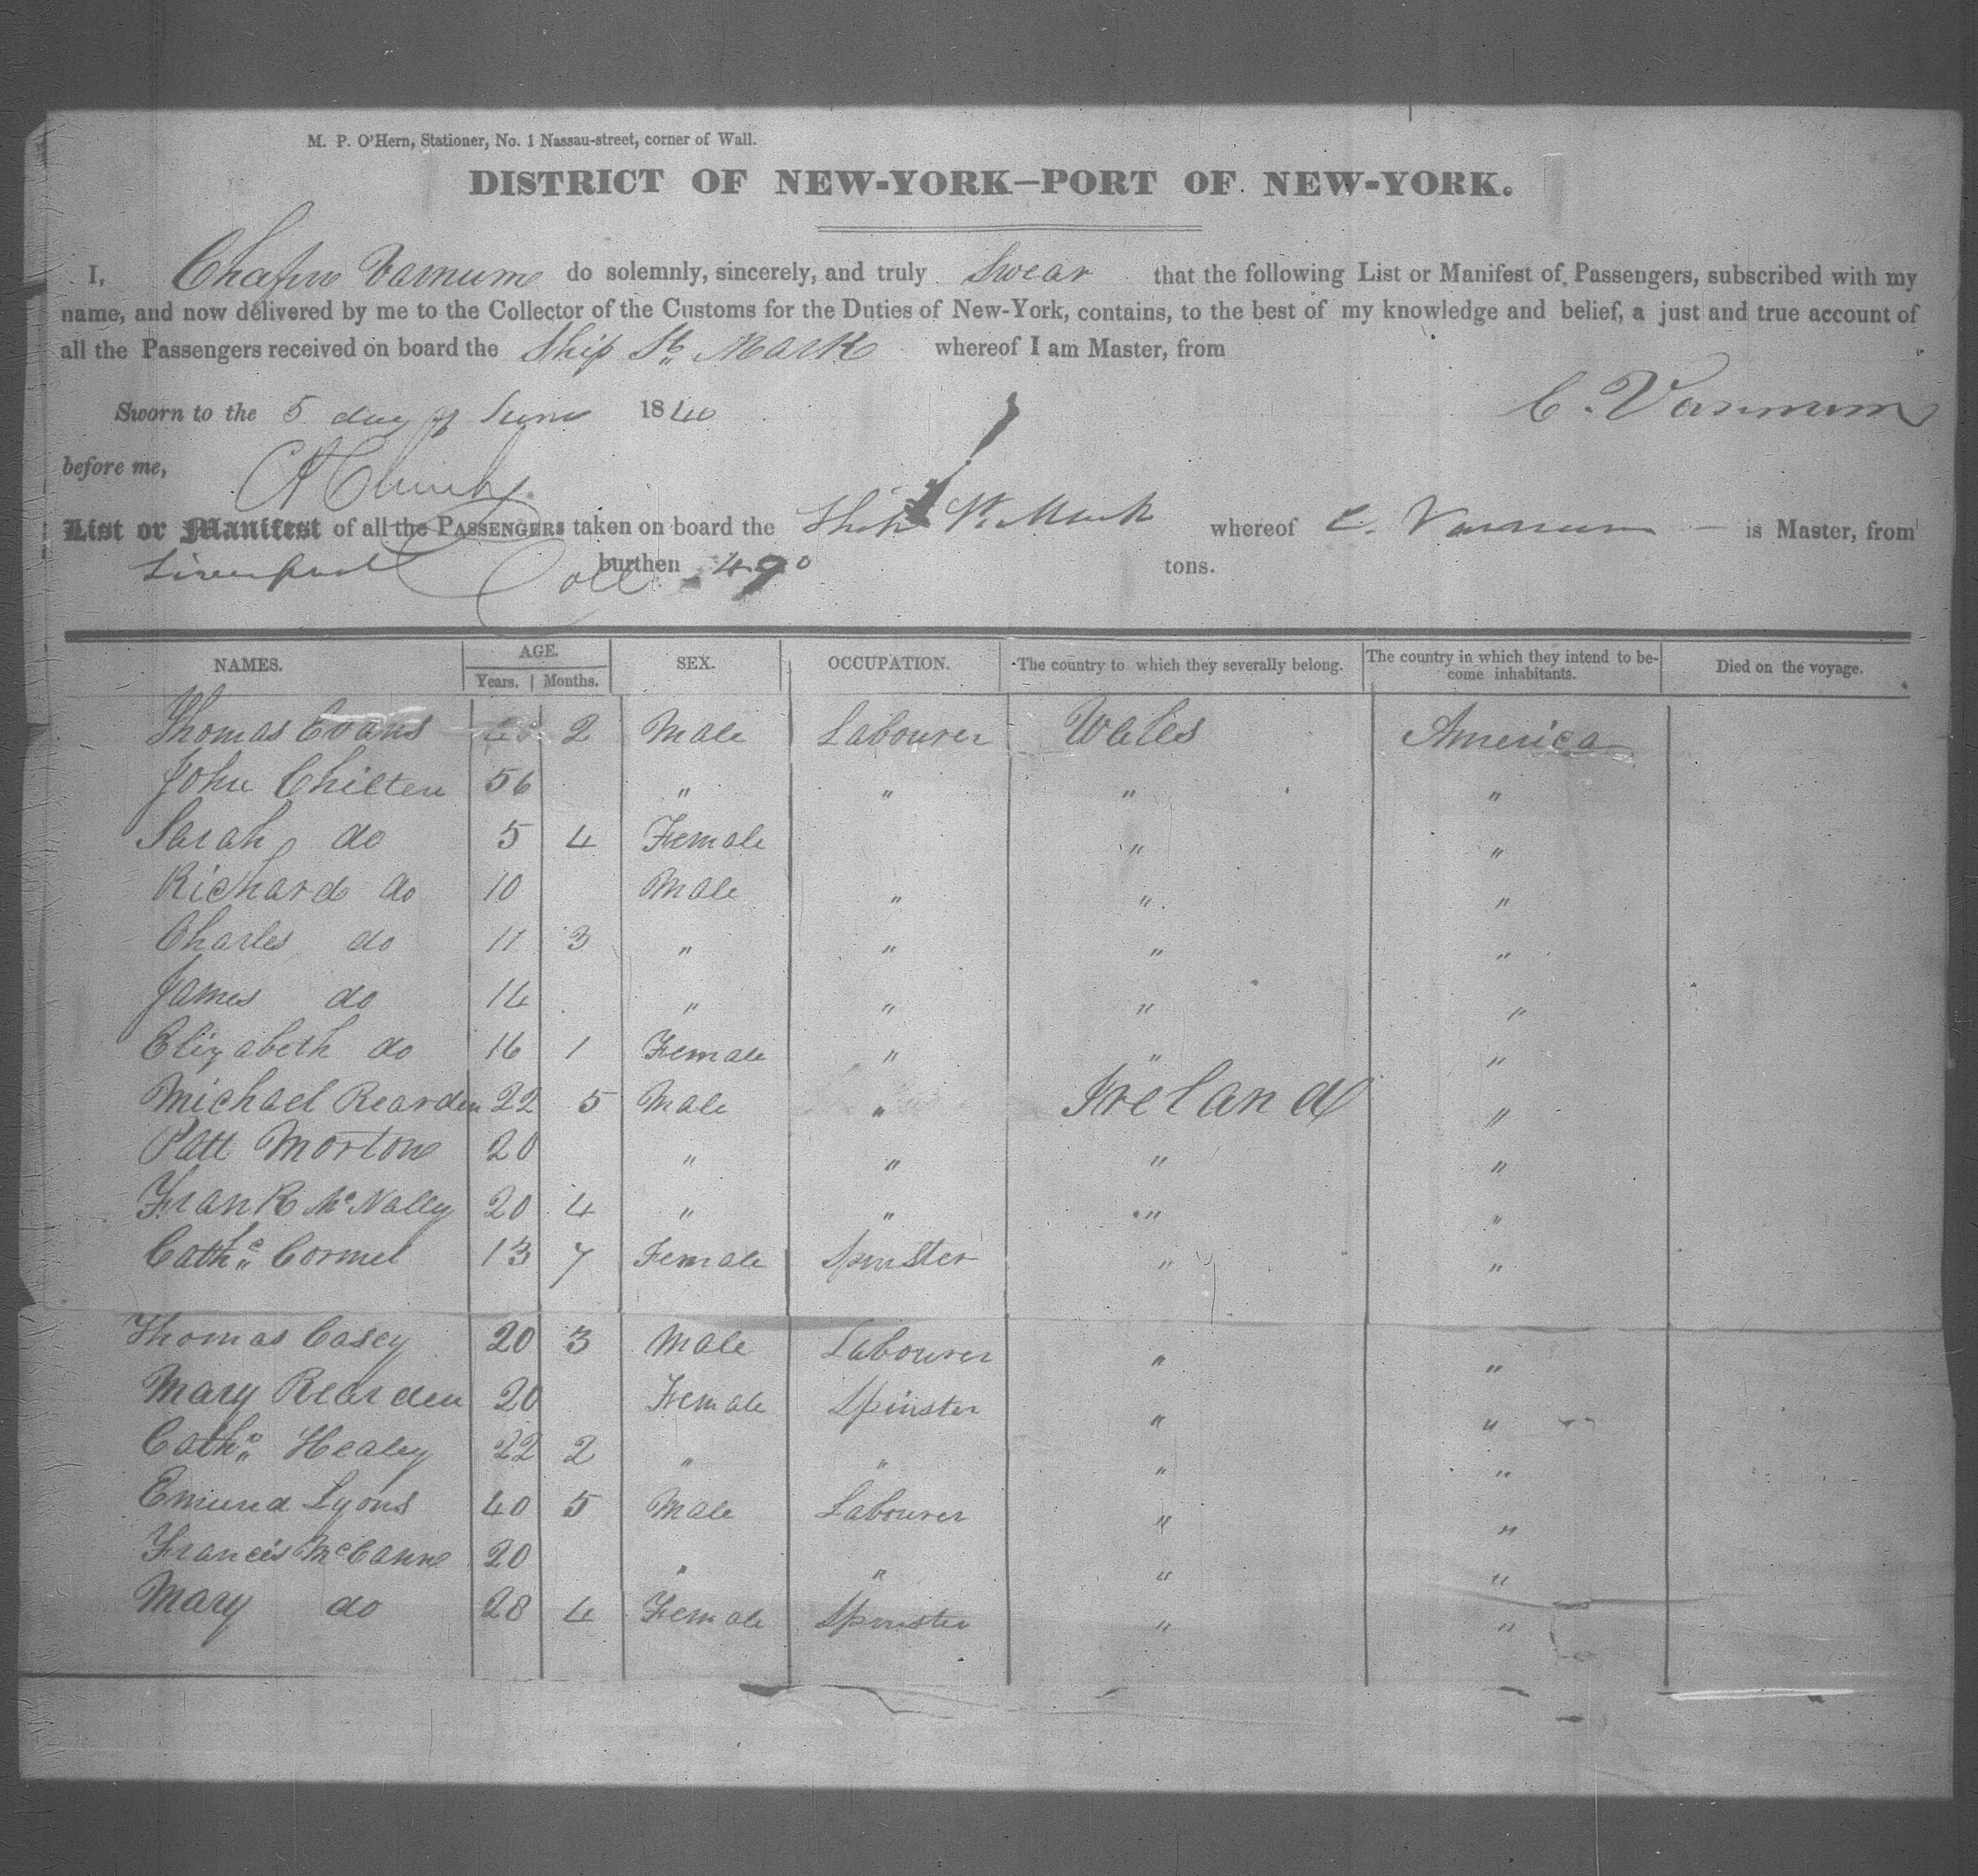 M. P. O'Hern, Stationer, No. 1 Nassau-street, corner of Wall.
DISTRICT OF NEW-YORK—PORT OF NEW-YORK.
I, Chapin Varnum do solemnly, sincerely, and truly Swear that the following List or Manifest of Passengers, subscribed with my
name, and now delivered by me to the Collector of the Customs for the Duties of New-York, contains, to the best of my knowledge and belief, a just and true account of
all the Passengers received on board the Ship St. Mark whereof I am Master, from
Sworn to the 5 day of June 1840 C. Varnum
before me,
List or Manifest of all the PASSENGERS taken on board the Ship St. Mark whereof C. Varnum — is Master, from
Liverpool burthen 490 tons.
Coll
NAMES. AGE. SEX. OCCUPATION. The country to which they severally belong. The country in which they intend to be- Died on the voyage.
Years. Months. come inhabitants.
Thomas Evans 2 Male Labourer Wales America
John Chilten 56 " " " "
Sarah do 5 4 Female " "
Richard do 10 Male " " "
Charles do 11 3 " " " "
James do 14 " " " "
Elizabeth do 16 1 Female " " "
Michael Rearden 22 5 Male " Ireland "
Patt Morton 20 " " " "
Frank McNally 20 4 " " " "
Cathe Cormel 13 7 Female Spinster " "
Thomas Casey 20 3 Male Labourer " "
Mary Rearden 20 Female Spinster " "
Cathe Healey 22 2 " " " "
Emund Lyons 40 5 Male Labourer " "
Francis McCann 20 " " " "
Mary do 28 4 Female Spinster " "